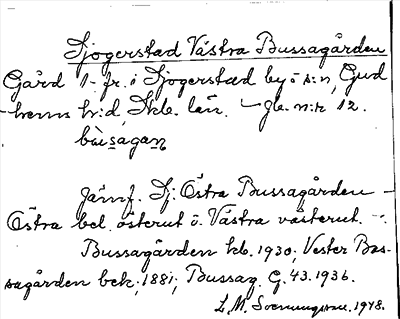 Sjogerstad Västra Bussagården
Gård 1- fr. i Sjogerstad by ö s:n, Gud
hems h:d, Skb. län. — Jb. n:r 12.
bùsagaṇ
Jämf. Sj: Östra Bussagården —
Östra bel. österut o. Västra västerut. —.
Bussagården kb. 1930, Vester Bus-
sagården bek. 1881, Bussag. G. 43. 1936.
L. M. Svenungsson. 1948.